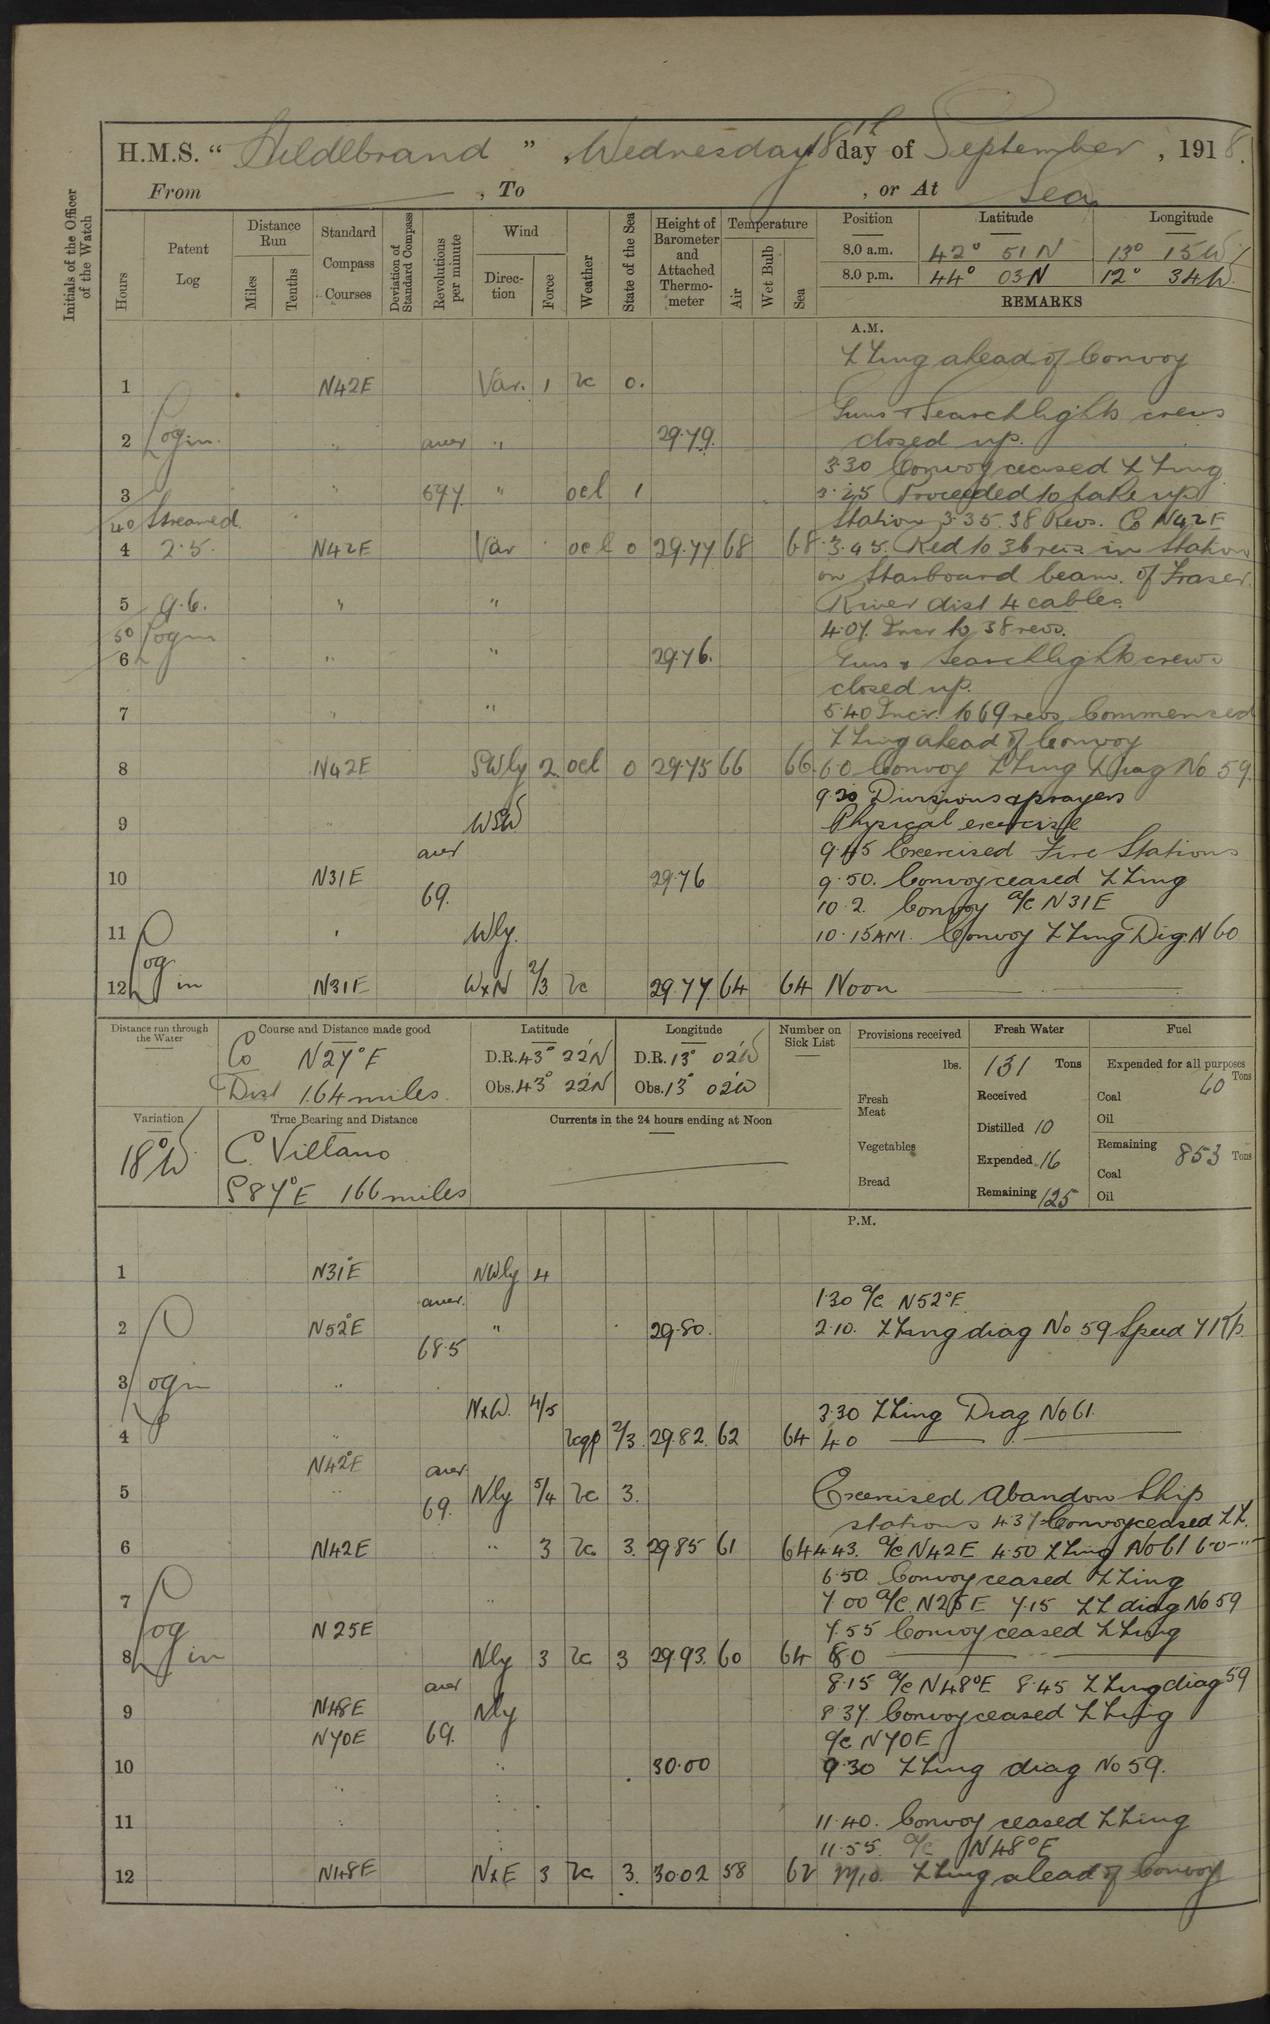 H.M.S. “ Hildebrand ” , Wednesday 18th day of September , 1918.
From , To , or At Sea
Initials of the Officer of the Watch
Hours
Patent Log
Distance Run
Miles
Tenths
Standard Compass Courses
Deviation of Standard Compass
Revolutions per minute
Wind
Direction
Force
Weather
State of the Sea
Height of Barometer and Attached Thermometer
Temperature
Air
Wet Bulb
Sea
Position Latitude Longitude
8.0 a.m. 42° 51 N 13° 15 W
8.0 p.m. 44° 03 N 12° 34 W.
REMARKS
A.M.
ZZing ahead of Convoy
1 N42E Var. 1 bc 0.
Guns & Searchlights crews
2 Log in. " aver " 29.79. closed up.
3.30 Convoy ceased ZZing
3 " 697. " ocl 1 3.25 Proceeded to take up
40 Streamed Station 3.35. 38 Revs. Co N42E
4 2.5. N42E Var ocl 0 29.77 68 68 3.45. Red to 36 revs in Station
on Starboard beam of Fraser
5 9.6. " " River dist 4 cables.
50 Log in 4.07. Incr to 38 revs.
6 " " 29.76. Guns & Searchlights crews
closed up.
7 " " 5.40 Incr. to 69 revs. Commenced
ZZing ahead of Convoy
8 N42E SWly 2 ocl 0 29.75 66 66 6.0 Convoy ZZing Diag No 59.
9.30 Divisions & prayers
9 " WSW Physical exercise
aver 9.45 Exercised Fire Stations
10 N31E 29.76 9.50. Convoy ceased ZZing
69. 10.2. Convoy a/c N31E
11 " Wly. 10.15 AM. Convoy ZZing Diag. N 60
Log in
12 N31E WxN 2/3 bc 29.77 64 64 Noon
Distance run through the Water
Course and Distance made good
Co N27°E
Dist 164 miles.
Latitude
D.R. 43° 22'N
Obs. 43° 22'N
Longitude
D.R. 13° 02'W
Obs. 13° 02'W
Number on Sick List
Provisions received
lbs.
Fresh Meat
Vegetables
Bread
Fresh Water
131 Tons
Received
Distilled 10
Expended 16
Remaining 125
Fuel
Expended for all purposes
60 Tons
Coal
Oil
Remaining 853 Tons
Coal
Oil
Variation
18° W
True Bearing and Distance
C. Villano
S87°E 166 miles
Currents in the 24 hours ending at Noon
P.M.
1 N31°E NWly 4
aver. 1.30 a/c N52°E
2 N52°E " 29.80. 2.10. ZZing diag No 59 Speed
68.5
3 Log in "
NxW. 4/5 3.30 ZZing Diag No 61.
4 " bcqp 2/3 29.82. 62 64 4.0
N42°E aver
5 " 69. Nly 5/4 bc 3. Exercised Abandon Ship
stations 4.37 Convoy ceased ZZ.
6 N42E " 3 bc 3. 29.85 61 64 4.43. a/c N42E 4.50 ZZing No 61 6.0
6.50. Convoy ceased ZZing
7 " 7.00 a/c N25E 7.15 ZZ diag No 59
Log in N25E 7.55 Convoy ceased ZZing
8 Nly 3 bc 3 29.93. 60 64 8.0
aver 8.15 a/c N48°E 8.45 ZZing diag 59
9 N48E Nly 8.37. Convoy ceased ZZing
N70E 69. a/c N70E
10 " 30.00 9.30 ZZing diag No 59.
11 " " 11.40. Convoy ceased ZZing
11.55. a/c N48°E
12 N48E NxE 3 bc 3. 30.02 58 62 Mid. ZZing ahead of Convoy